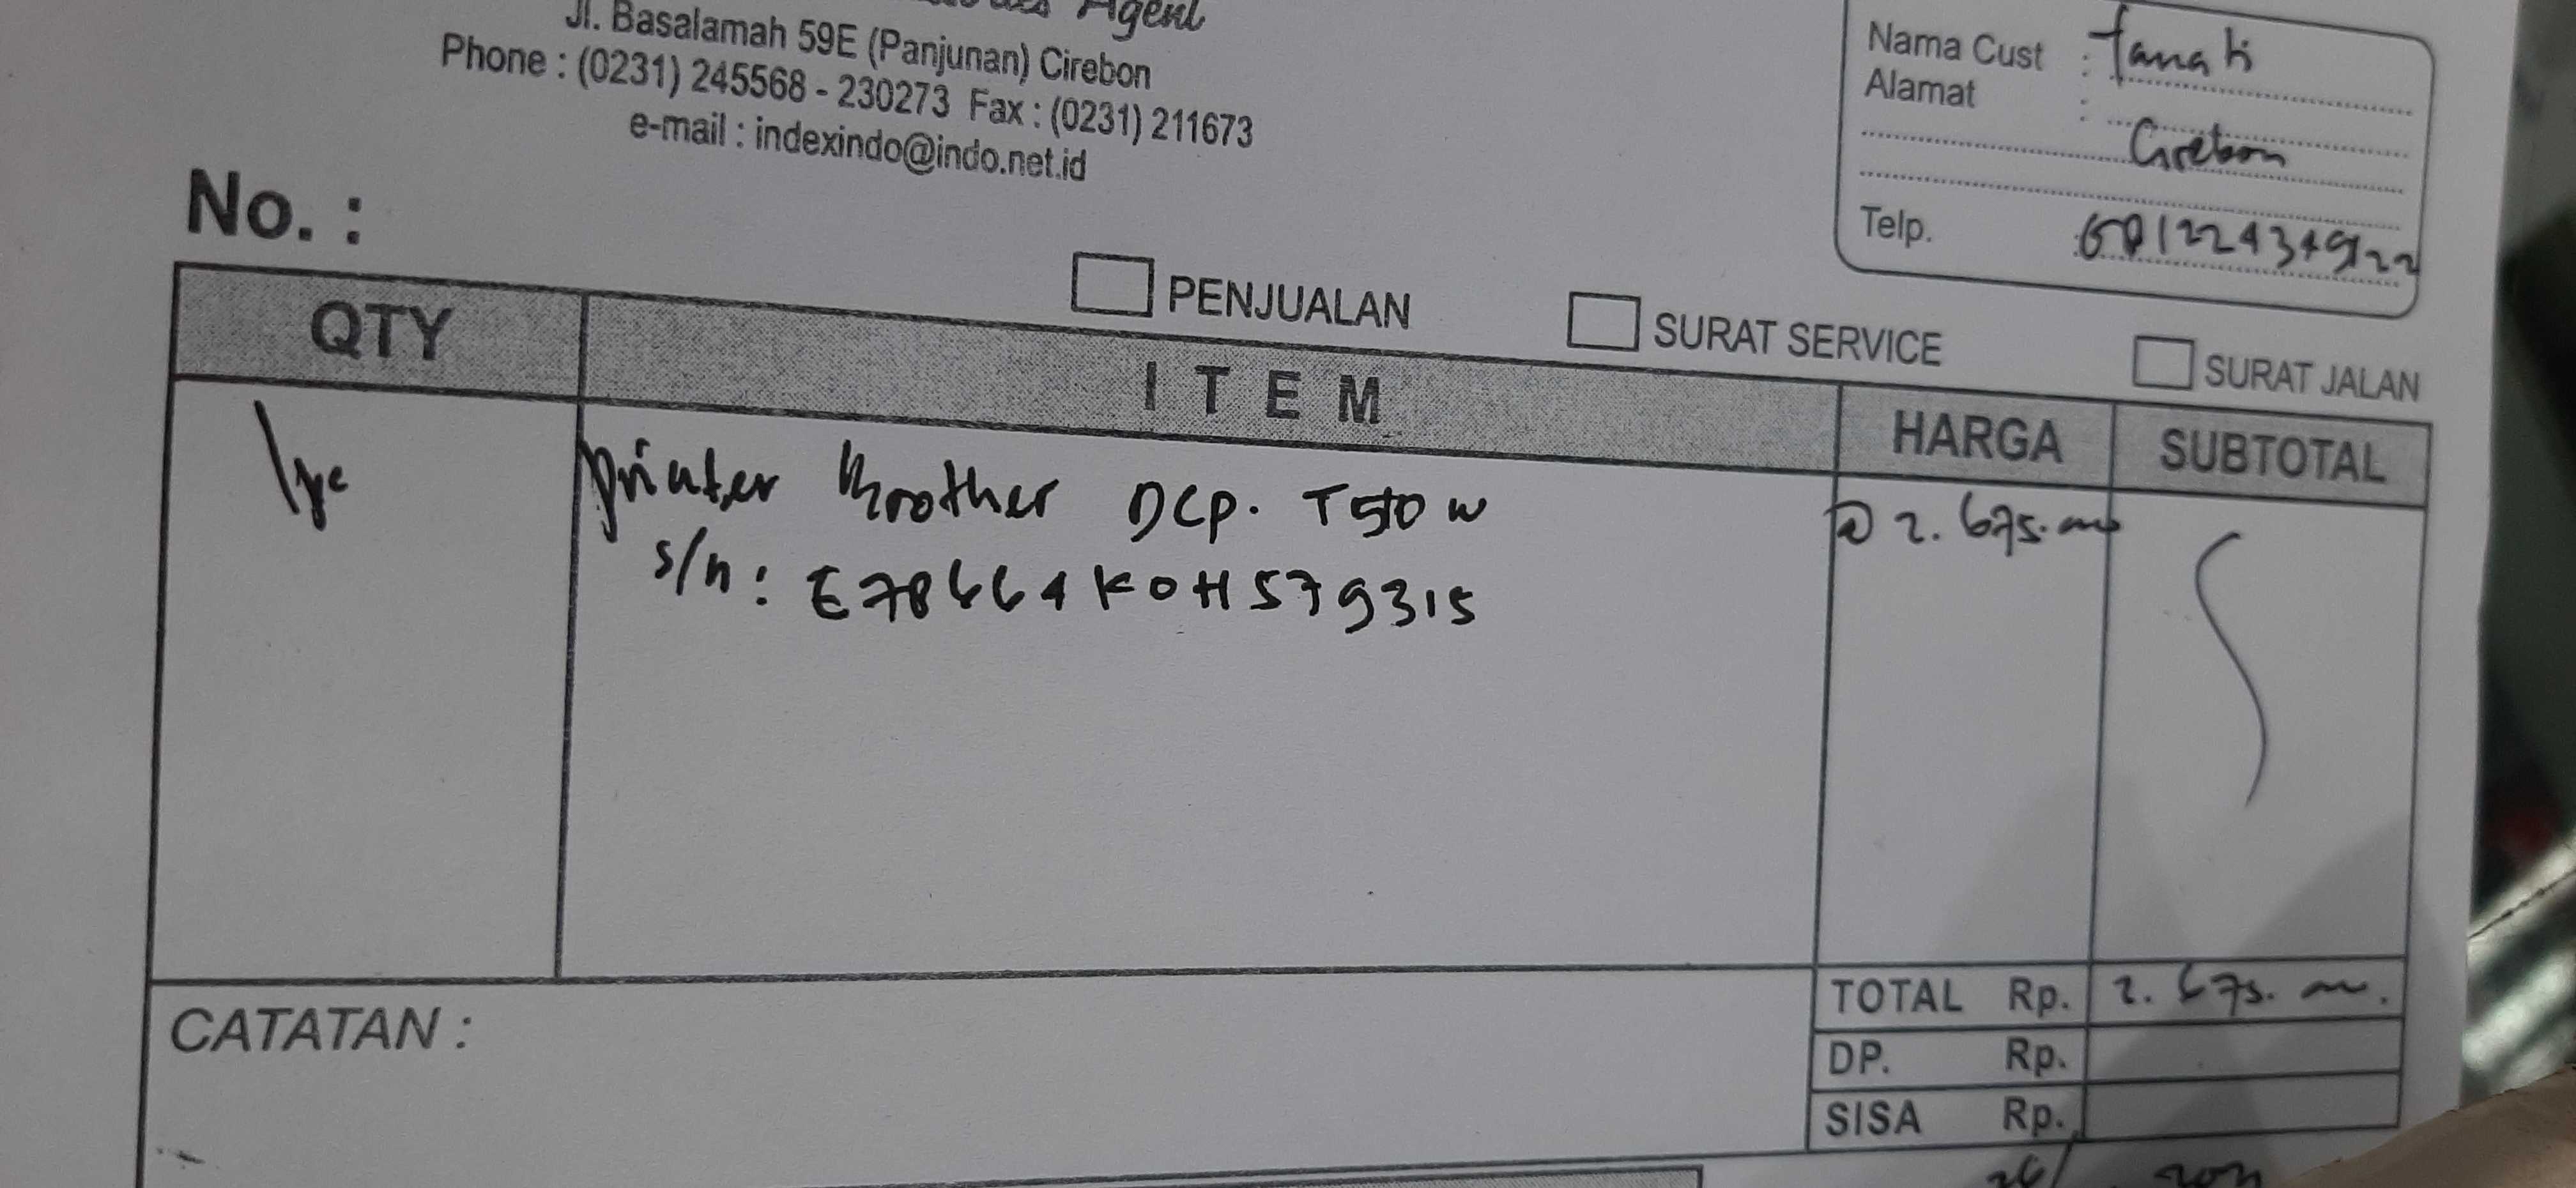 Agent
Jl. Basalamah 59E (Panjunan) Cirebon
Phone : (0231) 245568 - 230273 Fax : (0231) 211673
e-mail : indexindo@indo.net.id
Nama Cust :
Alamat :
Cirebon
Telp.
No. :
PENJUALAN
SURAT SERVICE
SURAT JALAN
QTY ITEM HARGA SUBTOTAL
1pc printer Brother DCP. T510w @ 2.675.000
s/n : E78664K0H579315
TOTAL Rp. 2.675.000.
CATATAN :
DP. Rp.
SISA Rp.